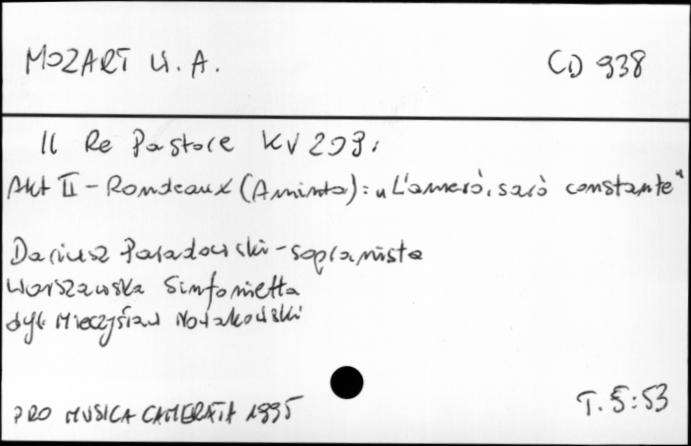 MOZART W. A. CD 938
Il Re Pastore KV 208:
Akt II - Rondeaux (Aminta): „L'amerò, sarò constante"
Dariusz Paradowski - sopranista
Warszawska Sinfonietta
dyr. Mieczysław Nowakowski
PRO MUSICA CAMERATA 1995 T. 5:53